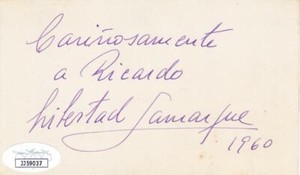 Cariñosamente
a Ricardo
Libertad Lamarque
1960
JJ59037